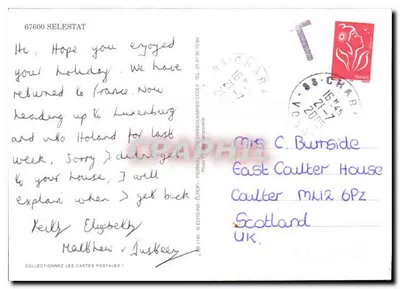 67600 SELESTAT
Hi, Hope you enjoyed
your holiday. We have
returned to France. Now
heading up to Luxenburg
and into Holand for last
week. Sorry I didn't get
to your house, I will
explain when I get back
Elizabeth
Matthew &
COLLECTIONNEZ LES CARTES POSTALES !
T
88-CHAR
16H45
21-7
FRANCE
CHARPHIL
Mrs C. Burnside
East Coulter House
Coulter ML12 6PZ
Scotland
UK.